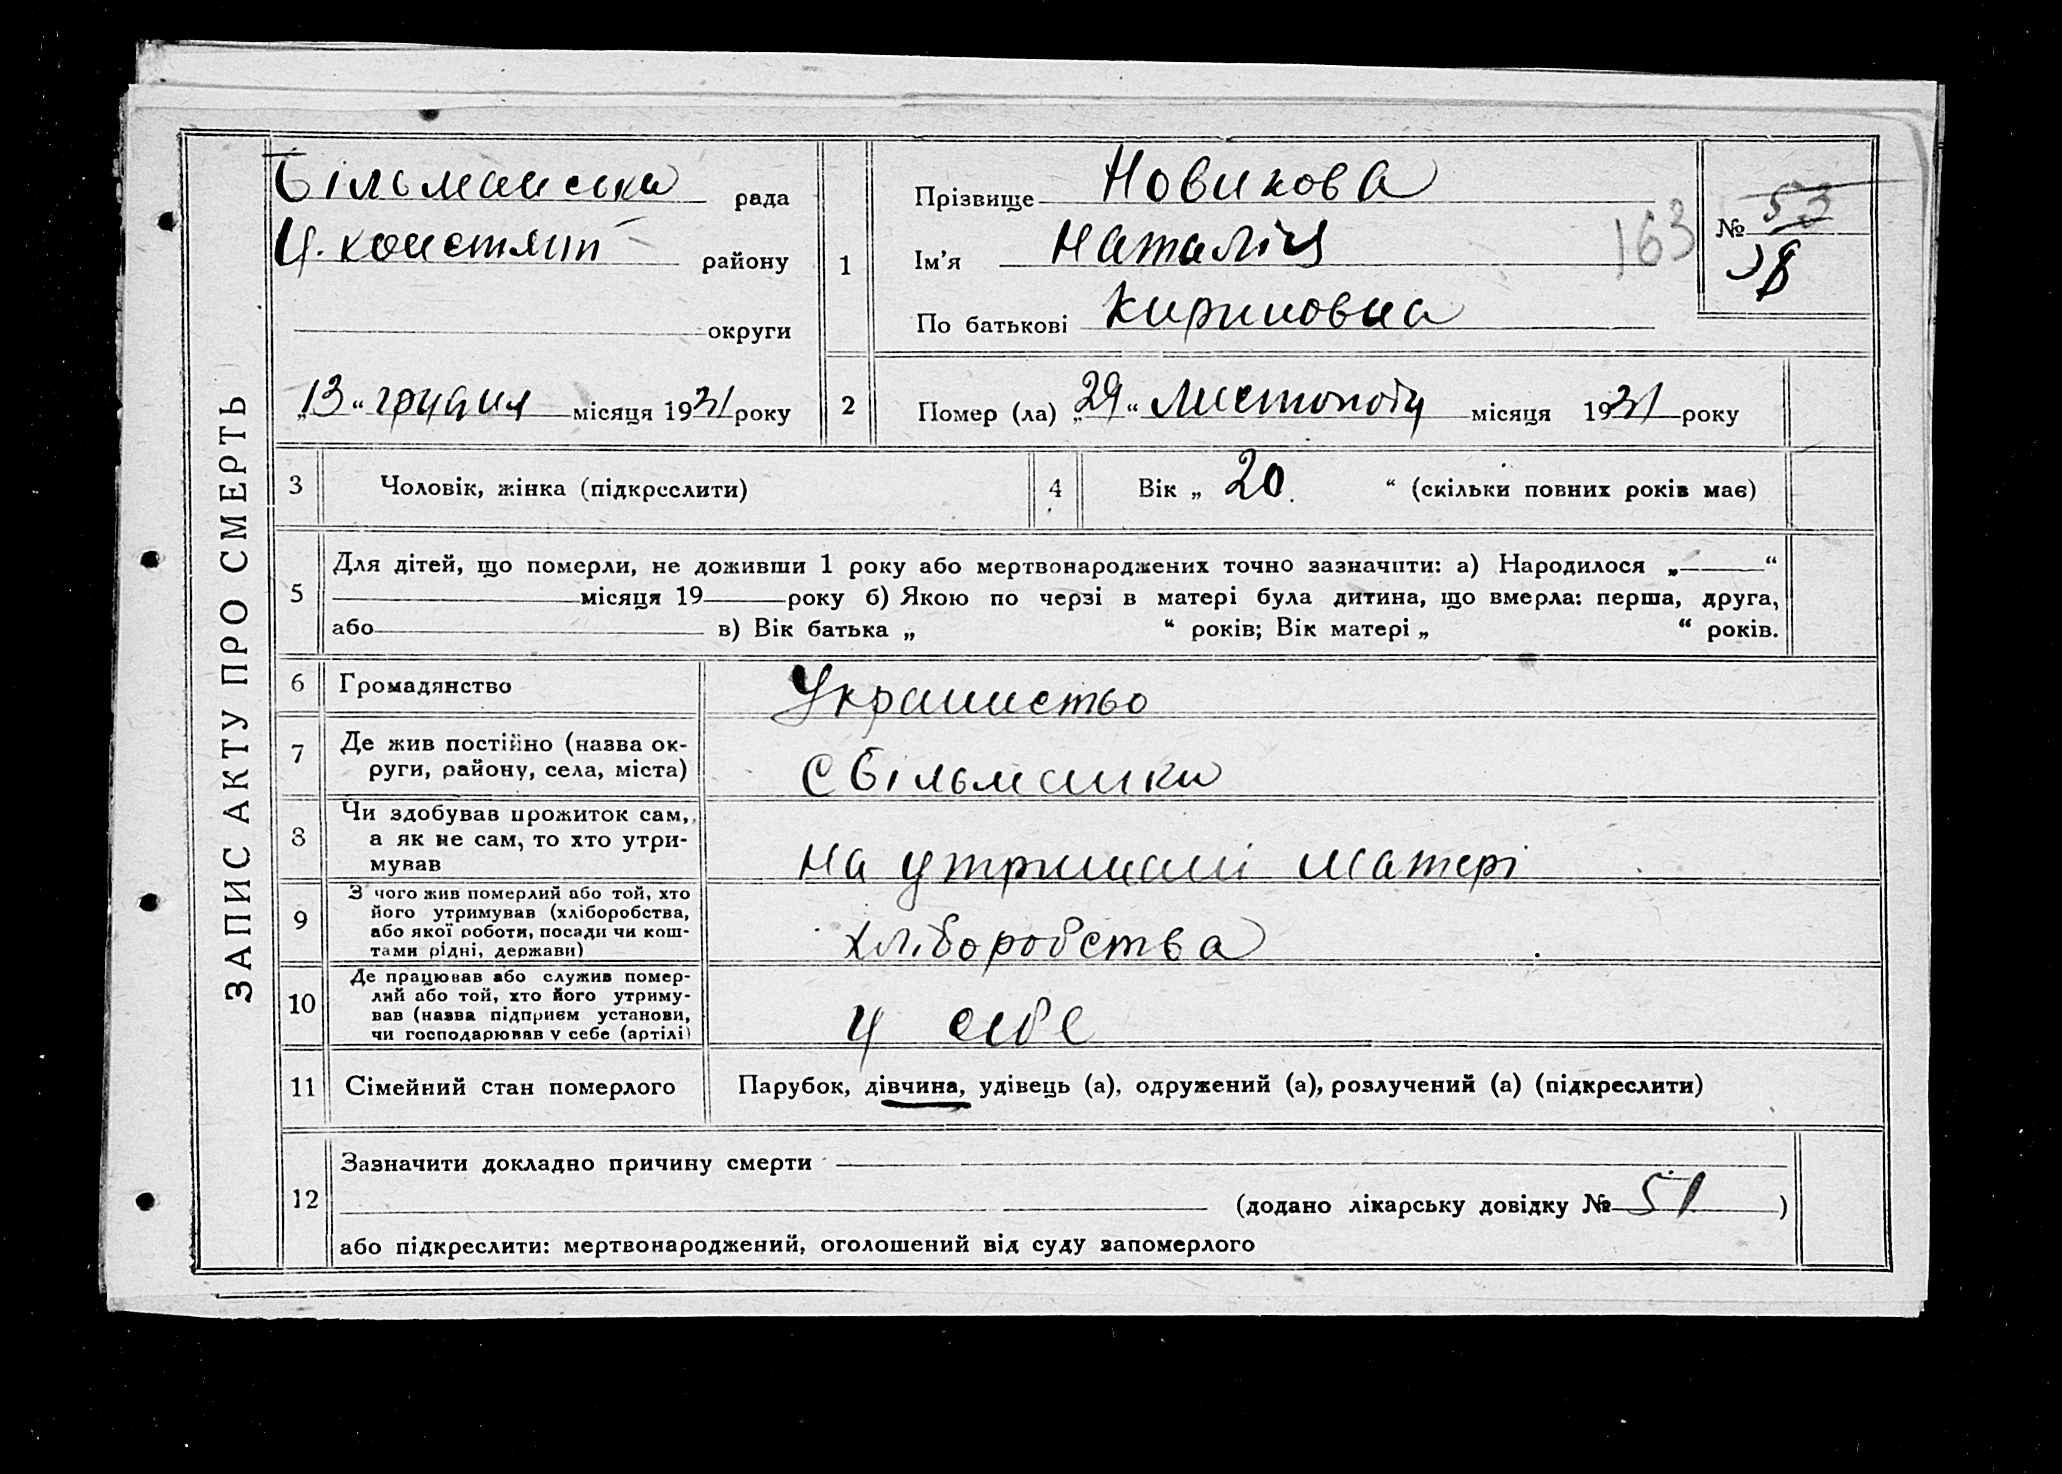 ЗАПИС АКТУ ПРО СМЕРТЬ
Більманська рада
Ц. констянт району
округи
„13“ грудня місяця 1931 року
1
Прізвище Новикова
Ім’я Наталія
По батькові Кириловна
163
№ 53
38
2
Помер (ла) „29“ листопоту місяця 1931 року
3 Чоловік, жінка (підкреслити)
4 Вік „ 20 “ (скільки повних років має)
5
Для дітей, що померли, не доживши 1 року або мертвонароджених точно зазначити: а) Народилося „ “
місяця 19 року б) Якою по черзі в матері була дитина, що вмерла: перша, друга,
або в) Вік батька „ “ років; Вік матері „ “ років.
6 Громадянство Украинство
7 Де жив постійно (назва ок-
руги, району, села, міста) с Більманки
8 Чи здобував прожиток сам,
а як не сам, то хто утри-
мував на утримані матері
9 З чого жив померлий або той, хто
його утримував (хліборобства,
або якої роботи, посади чи кош-
тами рідні, держави) хліборобства
10 Де працював або служив помер-
лий або той, хто його утриму-
вав (назва підприєм установи,
чи господарював у себе (артілі) у себе
11 Сімейний стан померлого Парубок, дівчина, удівець (а), одружений (а), розлучений (а) (підкреслити)
12
Зазначити докладно причину смерти
(додано лікарську довідку № 51 )
або підкреслити: мертвонароджений, оголошений від суду запомерлого